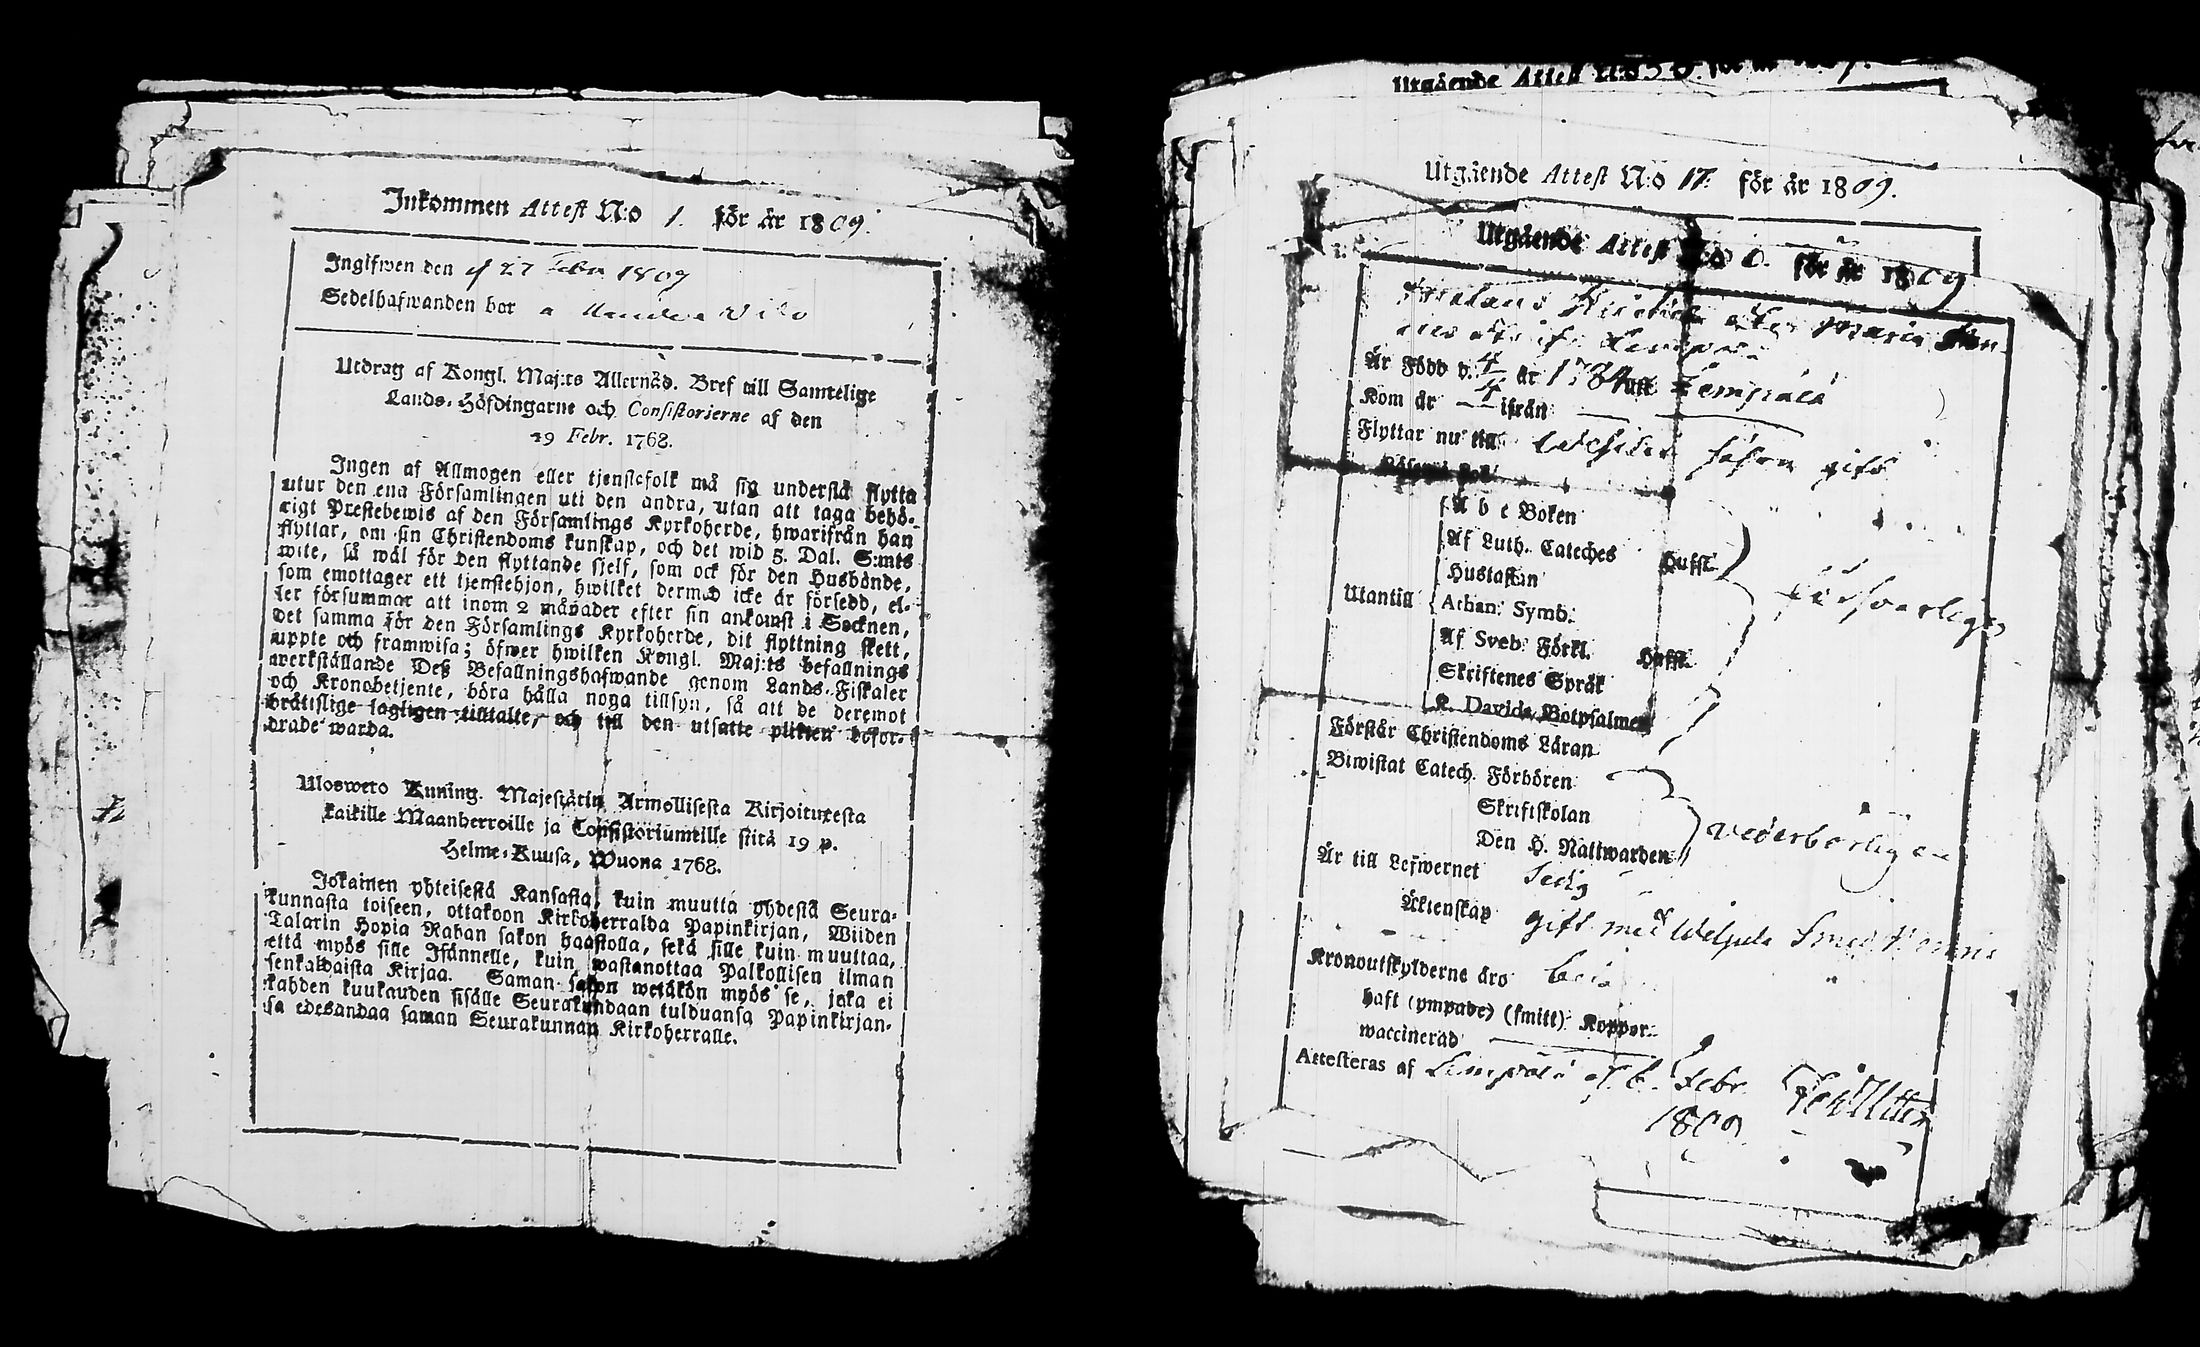 Inkommen Attest N:o 1. för år 1809.
Ingifwen den d 27 Febr 1809
Sedelhafwanden bor
Utdrag af Kongl. Maj:ts Allernåd. Bref till Samtelige
Lands-Höfdingarne och Consistorierne af den
19 Febr. 1768.
Ingen af Allmogen eller tjenstefolk må sig understå flytta
utur den ena Församlingen uti den andra, utan att taga behö-
rigt Prestebewis af den Församlings Kyrkoherde, hwarifrån han
flyttar, om sin Christendoms kunskap, och det wid 5. Dal. S:mts
wite, så wäl för den flyttande sjelf, som ock för den Husbonde,
som emottager ett tjenstehjon, hwilket dermed icke är försedd, el-
ler försummar att inom 2 månader efter sin ankomst i Socknen,
det samma för den Församlings Kyrkoherde, dit flyttning skett,
uppte och framwisa; öfwer hwilken Kongl. Maj:ts befallnings
werkställande Deß Befallningshafwande genom Lands-Fiskaler
och Kronobetjente, böra hålla noga tillsyn, så att de deremot
brätislige lagligen tilltalte, och till den utsatte plikten befor-
drade warda.
Uloswero Kuning. Majestätin Armollisesta Kirjoituxesta
kaikille Maanherroille ja Consistoriumeille siitä 19 p.
Helme-Kuusa, Wuona 1768.
Jokainen yhteisestä Kansasta, kuin muutta yhdestä Seura-
kunnasta toiseen, ottakoon Kirkoherralda Papinkirjan, Wiiden
Talarin Hopia Rahan sakon haastolla, sekä sille kuin muuttaa,
että myös sille Isännelle, kuin wastanottaa Palkollisen ilman
senkaldaista Kirjaa. Saman sakon wetäkön myös se, joka ei
kahden kuukauden sisälle Seurakundaan tulduansa Papinkirjan-
sa edesandaa saman Seurakunnan Kirkoherralle.
Utgående Attest N:o
Utgående Attest N:o 17. för år 1809.
Utgående Attest N:o 6. för år 1809
Maria
Är Född d. 4/4 år 1784 uti Lempälä
Kom år — ifrån —
Flyttar nu till
Läser i Bok
Utantill
A b c Boken
Af Luth. Cateches Husst.
Hustaflan
Athan. Symb.
Af Sveb. Förkl. Husst.
Skriftenes Språk
K. Davids Botpsalmer
försvarligen
Förstår Christendoms Läran
Biwistat Catech. Förhören
Skriftskolan
Den H. Nattwarden
vederbörligen
Är till Lefwernet Sedig
Äktenskap gift med
Kronoutskylderne äro
haft (ympade) (smitt) Koppor
waccinerad —
Attesteras af Lempälä d. 6. Febr.
1809.